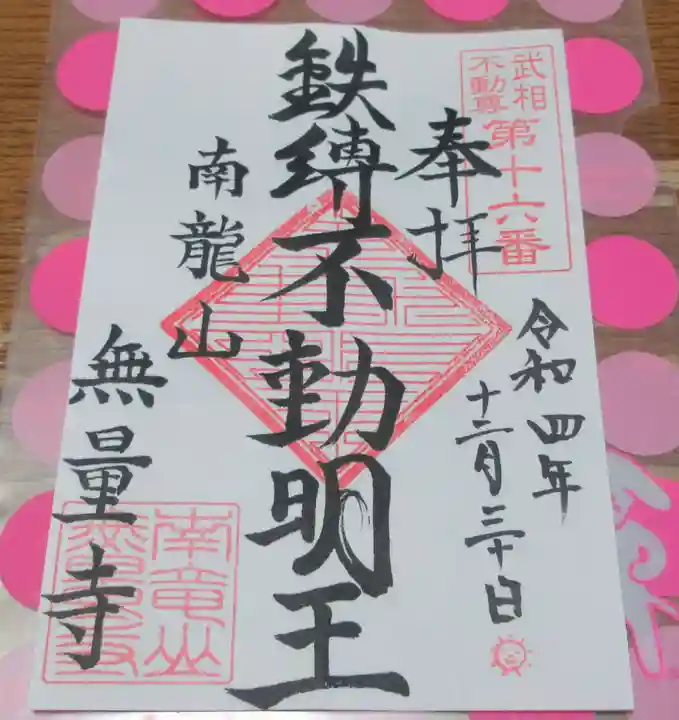 武相
不動尊
第十六番
奉拝
令和四年
十二月三十日
鉄縛不動明王
南龍山
無量寺
南竜山